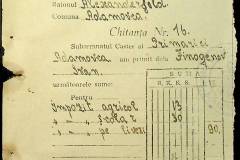 Raionul Alexanderfeld.
Comuna Adamovca.
Chitanța Nr. 16.
Subsemnatul Casier al Primăriei
Adamovca am primit dela Finogenov
Ivan.
SUMA
următoarele sume:
Pentru
Impozit agricol 13
" " școlar 30
" " pe livezi 90.